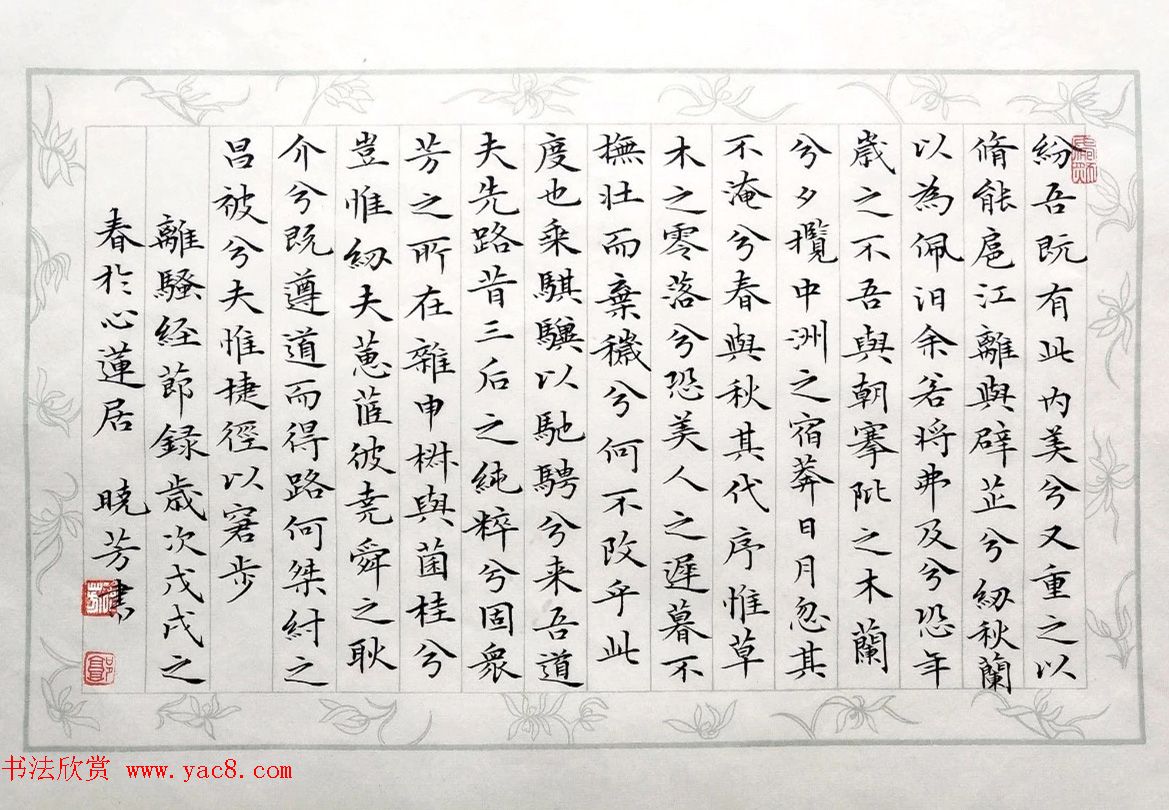 紛吾既有此內美兮又重之以
脩能扈江離與辟芷兮紉秋蘭
以為佩汩余若將弗及兮恐年
歲之不吾與朝搴阰之木蘭
兮夕攬中洲之宿莽日月忽其
不淹兮春與秋其代序惟草
木之零落兮恐美人之遲暮不
撫壯而棄穢兮何不改乎此
度也乘騏驥以馳騁兮来吾道
夫先路昔三后之純粹兮固衆
芳之所在雜申椒與菌桂兮
豈惟紉夫蕙茝彼堯舜之耿
介兮既遵道而得路何桀紂之
昌被兮夫惟捷徑以窘步
離騷經節録歲次戊戌之
春於心蓮居 曉芳書
书法欣赏 www.yac8.com